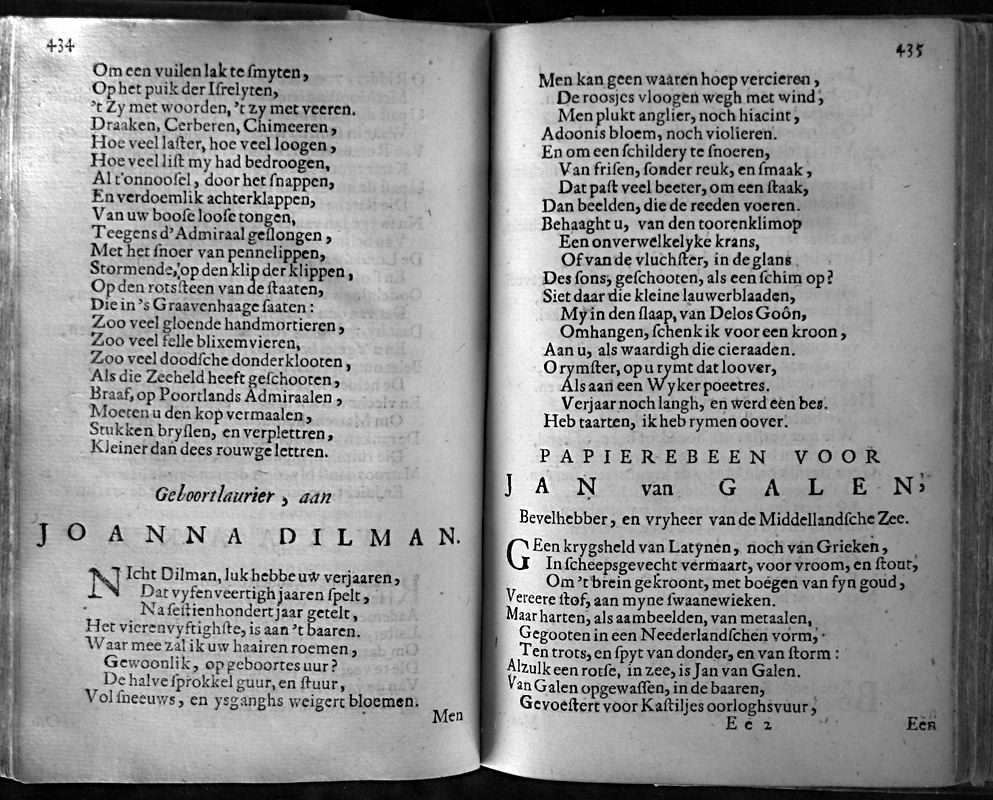 434
Om een vuilen lak te ſmyten,
Op het puik der Iſrelyten,
't Zy met woorden, 't zy met veeren.
Draaken, Cerberen, Chimeeren,
Hoe veel laſter, hoe veel loogen,
Hoe veel liſt my had bedroogen,
Al t'onnooſel, door het ſnappen,
En verdoemlik achterklappen,
Van uw booſe looſe tongen,
Teegens d'Admiraal geſlongen,
Met het ſnoer van pennelippen,
Stormende, op den klip der klippen,
Op den rotsſteen van de ſtaaten,
Die in 's Graavenhaage ſaaten:
Zoo veel gloende handmortieren,
Zoo veel felle blixemvieren,
Zoo veel doodſche donderklooten,
Als die Zeeheld heeft geſchooten,
Braaf, op Poortlands Admiraalen,
Moeten u den kop vermaalen,
Stukken bryſlen, en verplettren,
Kleiner dan dees rouwge lettren.
Geboortlaurier, aan
JOANNA DILMAN.
NIcht Dilman, luk hebbe uw verjaaren,
Dat vyfenveertigh jaaren ſpelt,
Na ſeſtienhondert jaar getelt,
Het vierenvyftighſte, is aan 't baaren.
Waar mee zal ik uw haairen roemen,
Gewoonlik, op geboortes uur?
De halve ſprokkel guur, en ſtuur,
Vol ſneeuws, en ysganghs weigert bloemen.
Men
435
Men kan geen waaren hoep vercieren,
De roosjes vloogen wegh met wind,
Men plukt anglier, noch hiacint,
Adoonis bloem, noch violieren.
En om een ſchildery te ſnoeren,
Van friſen, ſonder reuk, en ſmaak,
Dat paſt veel beeter, om een ſtaak,
Dan beelden, die de reeden voeren.
Behaaght u, van den toorenklimop
Een onverwelkelyke krans,
Of van de vluchſter, in de glans
Des ſons, geſchooten, als een ſchim op?
Siet daar die kleine lauwerblaaden,
My in den ſlaap, van Delos Goôn,
Omhangen, ſchenk ik voor een kroon,
Aan u, als waardigh die cieraaden.
O rymſter, op u rymt dat loover,
Als aan een Wyker poeetres.
Verjaar noch langh, en werd een bes.
Heb taarten, ik heb rymen oover.
PAPIEREBEEN VOOR
JAN van GALEN,
Bevelhebber, en vryheer van de Middellandſche Zee.
GEen krygsheld van Latynen, noch van Grieken,
In ſcheepsgevecht vermaart, voor vroom, en ſtout,
Om 't brein gekroont, met boegen van fyn goud,
Vereere ſtof, aan myne ſwaanewieken.
Maar harten, als aambeelden, van metaalen,
Gegooten in een Neederlandſchen vorm,
Ten trots, en ſpyt van donder, en van ſtorm:
Alzulk een rotſe, in zee, is Jan van Galen.
Van Galen opgewaſſen, in de baaren,
Gevoeſtert voor Kaſtiljes oorloghsvuur,
E e 2
Een